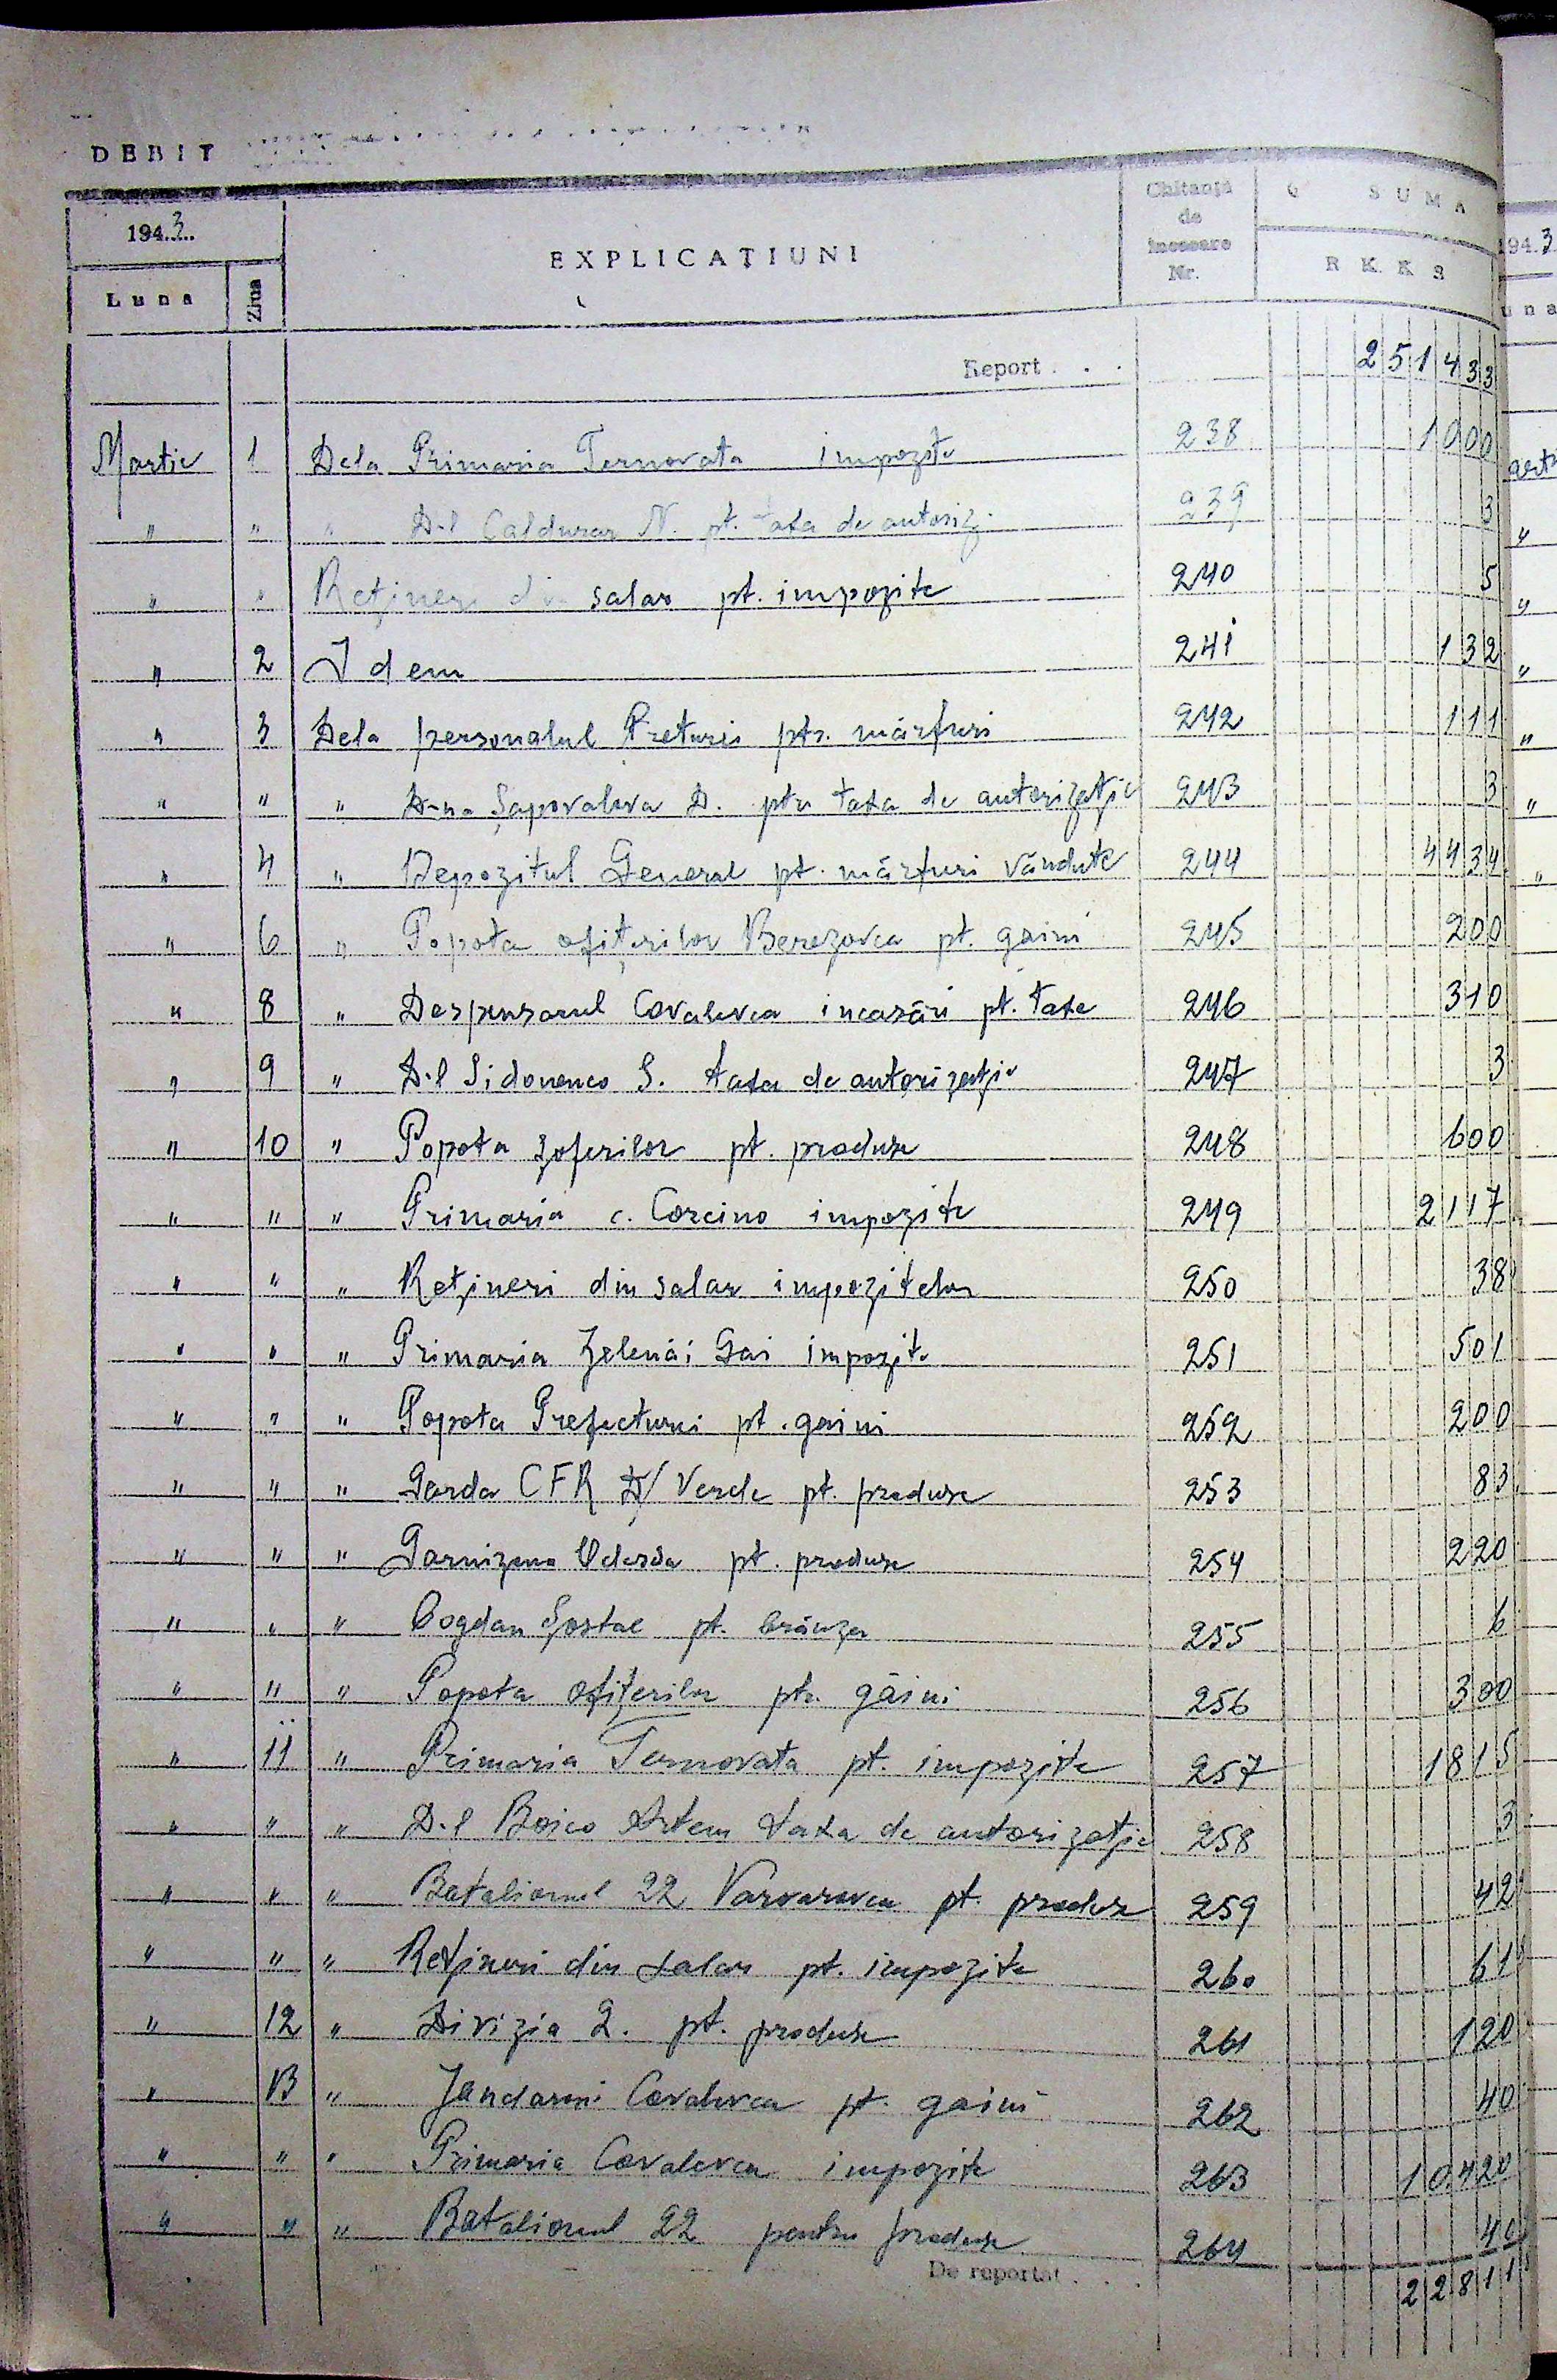 DEBIT
1943 EXPLICAȚIUNI Chitanță de încasare Nr. 6 SUMA
Luna Ziua RKKS
Report . . . 251433
Martie 1 Dela Primaria Ternovata impozite 238 1000
" " " D-l Caldurar N. pt. taxa de autoriz. 239 3
" " Rețineri din salar pt. impozite 240 5
" 2 Idem 241 132
" 3 Dela personalul Preturii ptr. mărfuri 242 111
" " " D-na Șapovalova D. ptr taxa de autorizație 243 3
" 4 " Depozitul General pt. mărfuri vândute 244 4434
" 6 " Popota ofițerilor Berezovca pt. gaini 245 200
" 8 " Despensarul Covalevca incasări pt. taxe 246 310
" 9 " D-l Sidonenco S. taxa de autorizație 247 3
" 10 " Popota șoferilor pt. produse 248 600
" " " Primaria c. Corcino impozite 249 2117
" " " Rețineri din salar impozitelor 250 38
" " " Primaria Zelenâi Gai impozite 251 501
" " " Popota Prefecturei pt. gaini 252 200
" " " Garda CFR D/ Verde pt. produse 253 83
" " " Garnizona Odessa pt. produse 254 220
" " " Bogdan pt. brânza 255 6
" " " Popota ofițerilor ptr. găini 256 300
" 11 " Primaria Ternovata pt. impozite 257 1815
" " " D-l Boico Artem taxa de autorizație 258 3
" " " Batalionul 22 Varvarovca pt. produse 259 42
" " " Rețineri din salar pt. impozite 260 61
" 12 " Divizia 2. pt. produse 261 120
" 13 " Jandarmi Covalevca pt. gaini 262 40
" " " Primaria Covalevca impozite 263 10420
" " " Batalionul 22 pentru produse 264 40
De reportat . . . 22811